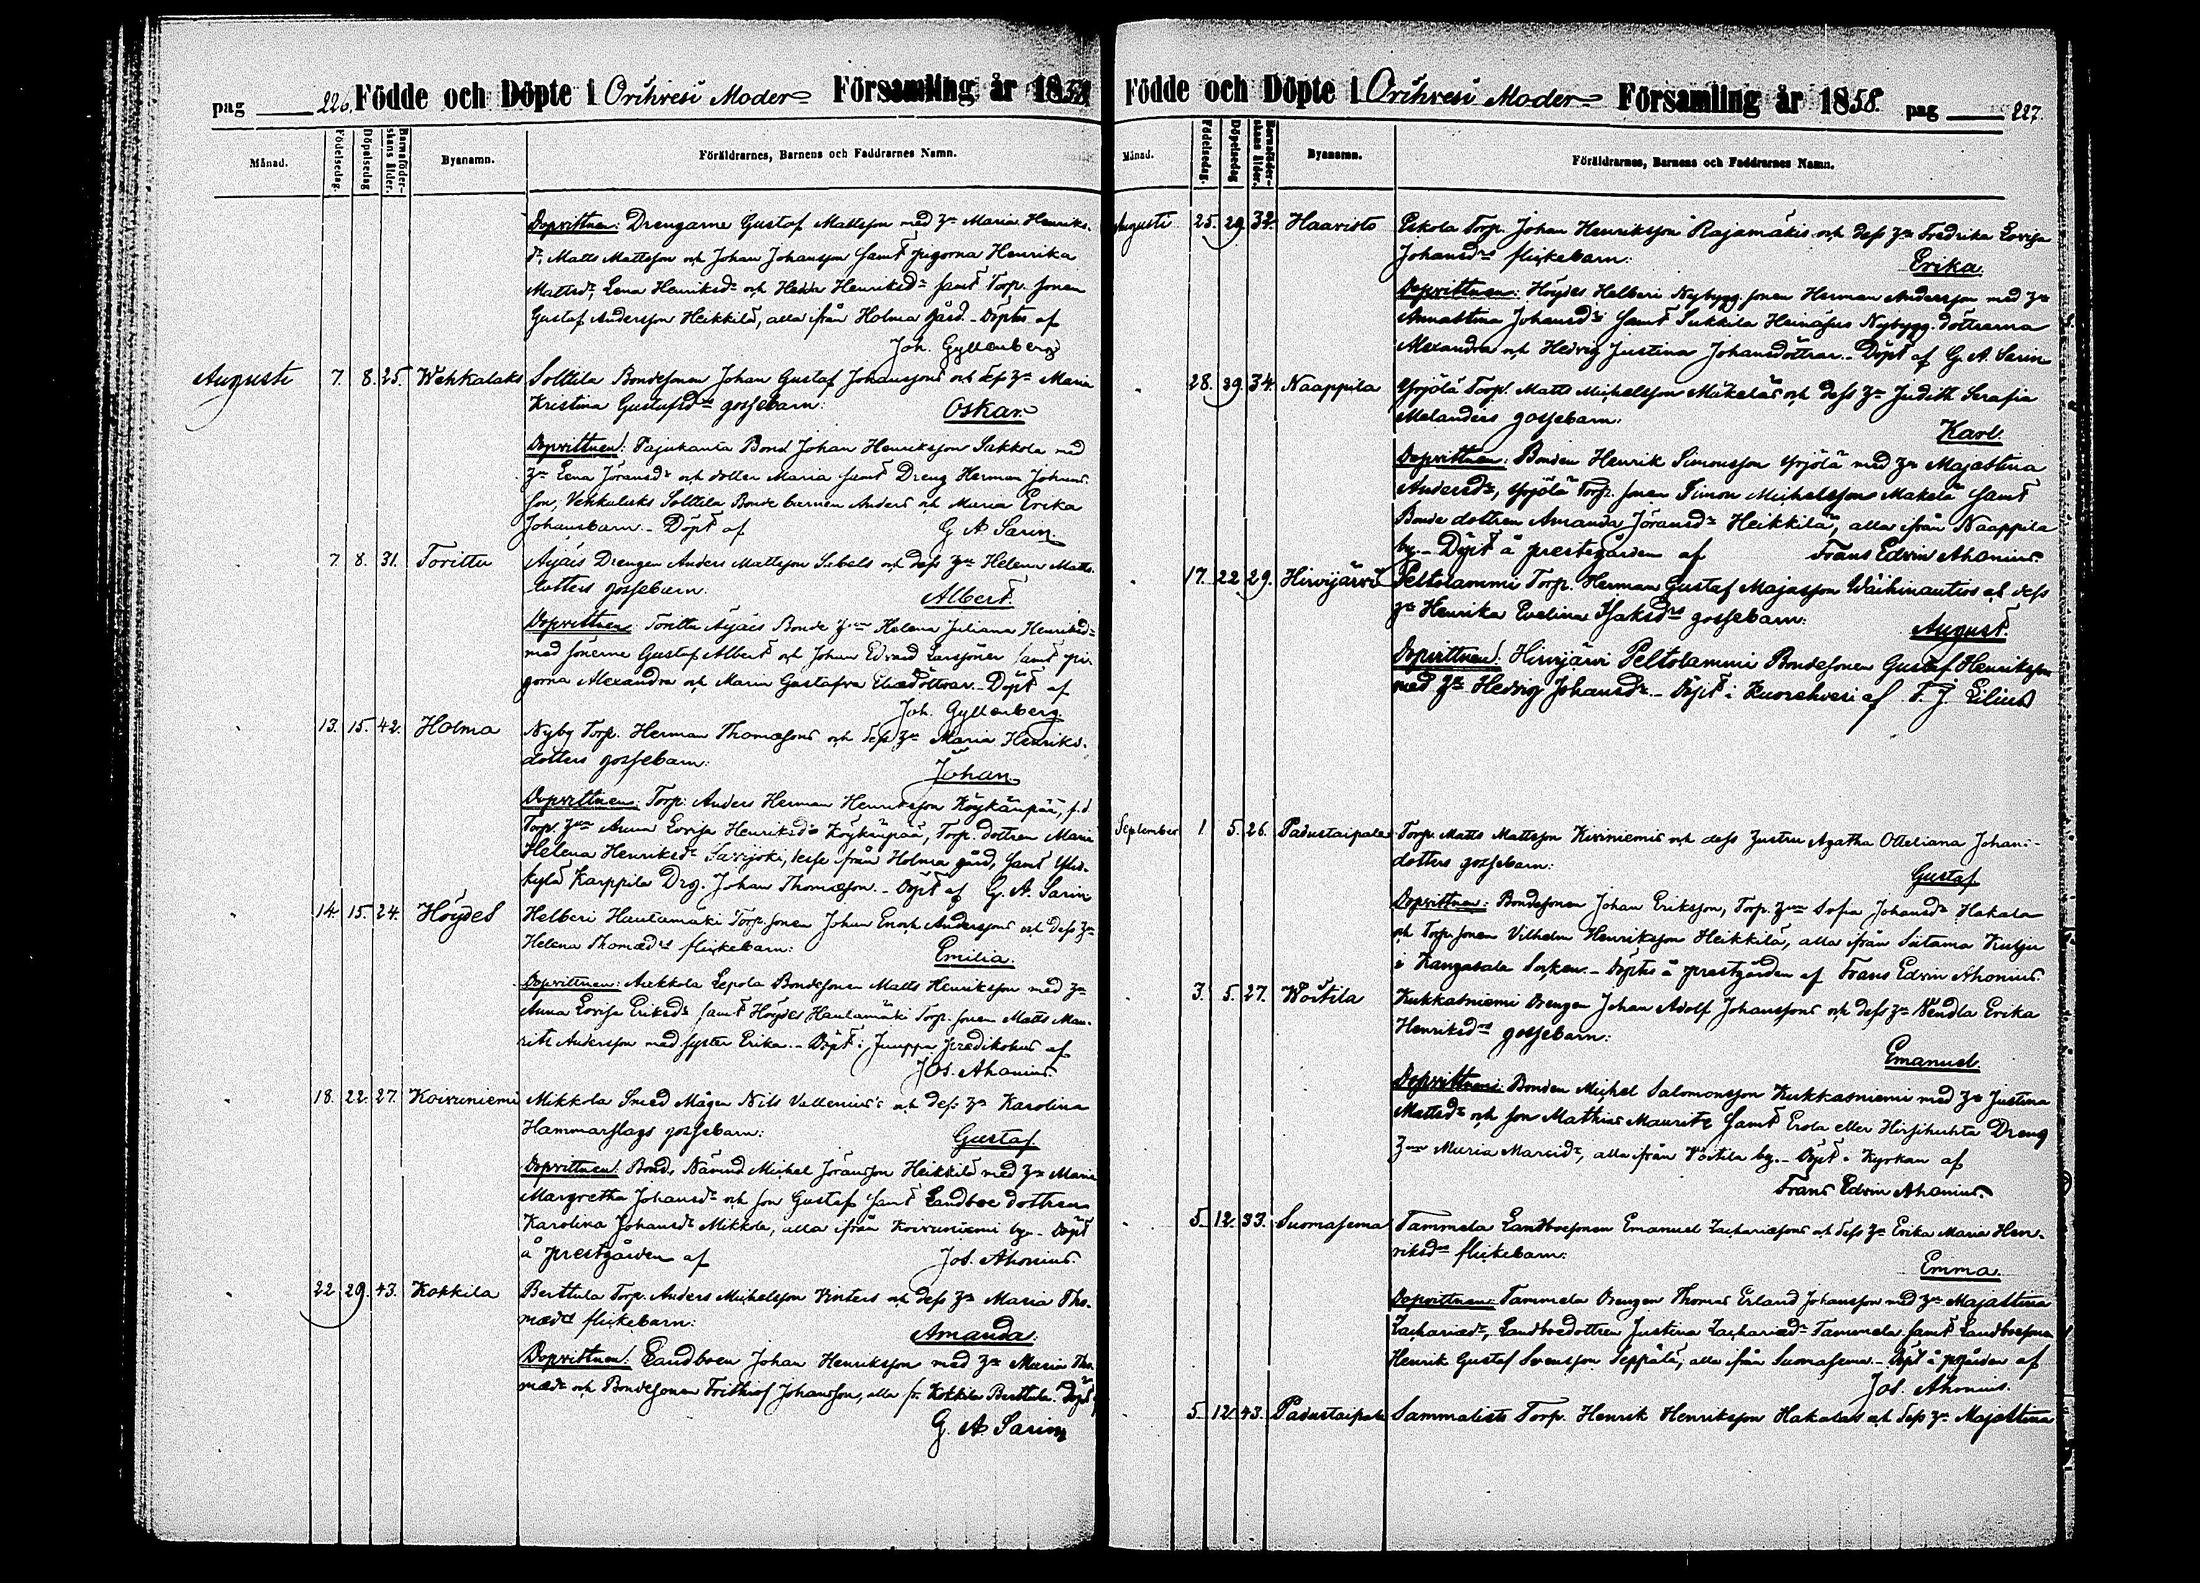 pag 226. Födde och Döpte i Orihvesi Moder= Församling år 1858
Månad. Födelsedag. Döpelsedag Barnaföderskans ålder. Byanamn. Föräldrarnes, Barnens och Faddrarnes Namn.
Dopvittnen: Drengarne Gustaf Mattsson med hu Maria Henriks-
dr, Matts Mattsson och Johan Johansson samt pigorna Henrika
Mattsdr, Lena Henriksdr och Hedda Henriksdr samt Torp. sonen
Gustaf Andersson Heikkilä, alla ifrån Holma gård. Döptes af
Joh. Gyllenberg
Augusti 7. 8. 25. Wehkalaks Solttila Bondesonen Johan Gustaf Johanssons och dess hu Maria
Kristina Gustafsdrs gossebarn: Oskar.
Dopvittnen: Pajukanta Bond Johan Henriksson Sakkola med
hu Lena Jöransdr och dotter Maria samt Dreng Herman Johans-
son, Vehkalaks Solttila Bonde barnen Anders och Maria Erika
Johansbarn. Döpt af G. A. Sarin.
7. 8. 31. Torittu Äijäis Drengen Anders Mattsson Sabels och dess hu Helena Matts-
dotters gossebarn. Albert.
Dopvittnen: Torittu Äijäis Bonde hun Helena Juliana Henriksdr
med sönerne Gustaf Albert och Johan Edvard Larssöner samt pi-
gorna Alexandra och Maria Gustafva Eliædöttrar. Döpt af
Joh. Gyllenberg.
13. 15. 42. Holma Nyby Torp. Herman Thomæsons och dess hu Maria Henriks-
dotters gossebarn: Johan.
Dopvittnen: Torp. Anders Herman Henriksson Köykänpää, f.d.
Torp. hun Anna Lovisa Henriksdr Köykänpää, Torp. dottren Maria
Helena Henriksdr Savijoki, desse från Holma gård, samt Ylis-
kylä Karppila Drg. Johan Thomæson. Döpt af G. A. Sarin
14. 15. 24. Höydes Helberi Hautamäki Torp. sonen Johan Enoch Anderssons och dess hu
Helena Thomædrs flickebarn: Emilia.
Dopvittnen: Aukkola Lepola Bondesonen Matts Henriksson med hu
Anna Lovisa Eriksdr samt Höydes Hautamäki Torp. sonen Matts Mau-
ritz Andersson med syster Erika. Döpt i Juuppa predikohus af
Jos. Ahonius.
18. 22. 27. Koivuniemi Mikkola Smed Mågen Nils Vallenius's och dess hu Karolina
Hammarslags gossebarn: Gustaf
Dopvittnen: Bond. Nämnd Michel Jöransson Heikkilä med hu Maria
Margretha Johansdr och son Gustaf samt Landboe dottren
Karolina Johansdr Mikkola, alla ifrån Koivuniemi by. Döpt
å prestgården af Jos. Ahonius.
22 29. 43. Kokkila Berttula Torp. Anders Michelsson Vinters och dess hu Maria Tho-
mædrs flickebarn: Amanda.
Dopvittnen: Landboen Johan Henriksson med hu Maria Tho-
mædr och Bondesonen Frithiof Johansson, alla fr. Kokkila Berttula. Döpt
G. A. Sarin
Födde och Döpte i Orihvesi Moder= Församling år 1858. pag 227.
Månad. Födelsedag. Döpelsedag Barnaföderskans ålder. Byanamn. Föräldrarnes, Barnens och Faddrarnes Namn.
Augusti 25. 29. 32. Haavisto Eskola Torp. Johan Henriksson Rajamäkis och dess hu Fredrika Lovisa
Johansdrs flickebarn: Erika.
Dopvittnen: Höydes Helberi Nybygg. sonen Herman Andersson med hu
Annastina Johansdr samt Sukkila Heinäsuo Nybygg. döttrarna
Alexandra och Hedvig Justina Johansdöttrar. Döpt af G. A. Sarin
28. 29. 34. Naappila Yrjölä Torp. Matts Michelsson Mäkeläs och dess hu Judith Serafia
Melanders gossebarn. Karl.
Dopvittnen: Bonden Henrik Simonsson Yrjölä med hu Majastina
Andersdr, Yrjölä Torp. sonen Simon Michelsson Mäkelä samt
Bonde dottren Amanda Jöransdr Heikkilä, alla ifrån Naappila
by. Döpt å prestegården af Frans Edvin Ahonius.
17. 22. 29. Hirvijärvi Peltolammi Torp. Herman Gustaf Majasson Wäihinautios och dess
hu Henrika Evelina Isaksdrs gossebarn: August.
Dopvittnen: Hirvijärvi Peltolammi Bondesonen Gustaf Henriksson
med hu Hedvig Johansdr. Döpt i Kuorehvesi af F. J. Lilius
September 1. 5. 26. Padustaipale Torp. Matts Mattsson Kiviniemis och dess hustru Agatha Otteliana Johans-
dotters gossebarn: Gustaf
Dopvittnen: Bondesonen Johan Eriksson, Torp. hun Sofia Johansdr Hakala
och Torp. sonen Vilhelm Henriksson Heikkilä, alla ifrån Siitama Kutju
i Kangasala Socken. Döptes å prestgården af Frans Edvin Ahonius.
3. 5. 27. Woitila Kukkasniemi Drengen Johan Adolf Johanssons och dess hu Vendla Erika
Henriksdrs gossebarn: Emanuel.
Dopvittnen: Bonden Michel Salomonsson Kukkasniemi med hu Justina
Mattsdr och son Mathias Mauritz samt Erola eller Hirsihuhta Dreng
hun Maria Marcidr, alla ifrån Voitila by. Döpt i Kyrkan af
Frans Edvin Ahonius.
5. 12. 33. Suomasema Tammela Landboesonen Emanuel Zachariæsons och dess hu Erika Maria Hen-
riksdrs flickebarn: Emma.
Dopvittnen: Tammela Drengen Thomas Erland Johansson med hu Majastina
Zachariædr, Landboedottren Justina Zachariædr Tammela samt Landboesonen
Henrik Gustaf Svensson Seppälä, alla ifrån Suomasema. Döpt å pgården af
Jos. Ahonius.
5. 12. 43. Padustaipale Sammalisto Torp. Henrik Henriksson Hakalas och dess hu Majastina